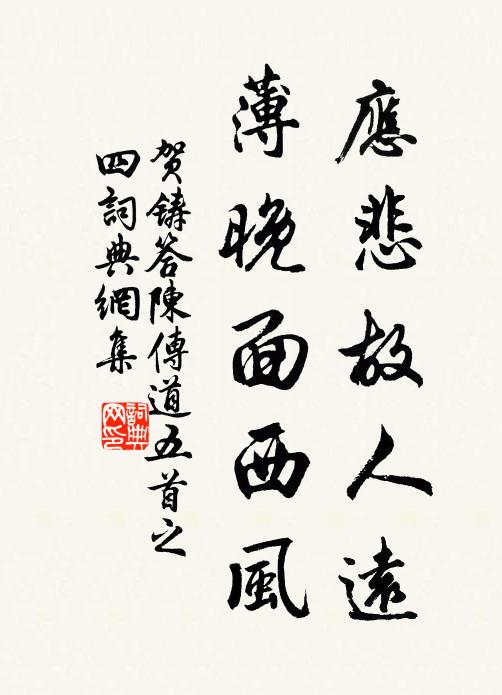 應悲故人遠
薄晚面西風
賀鑄答陳傳道五首之
四詞典網集
詞典
网印